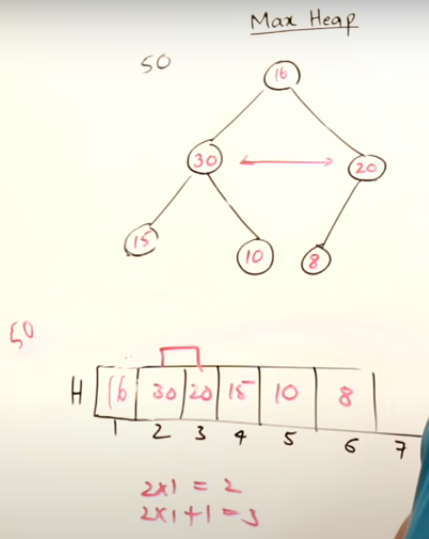 Max Heap
50
16
30
20
15
10
8
50
H 16 30 20 15 10 8
1 2 3 4 5 6 7
2x1 = 2
2x1+1=3